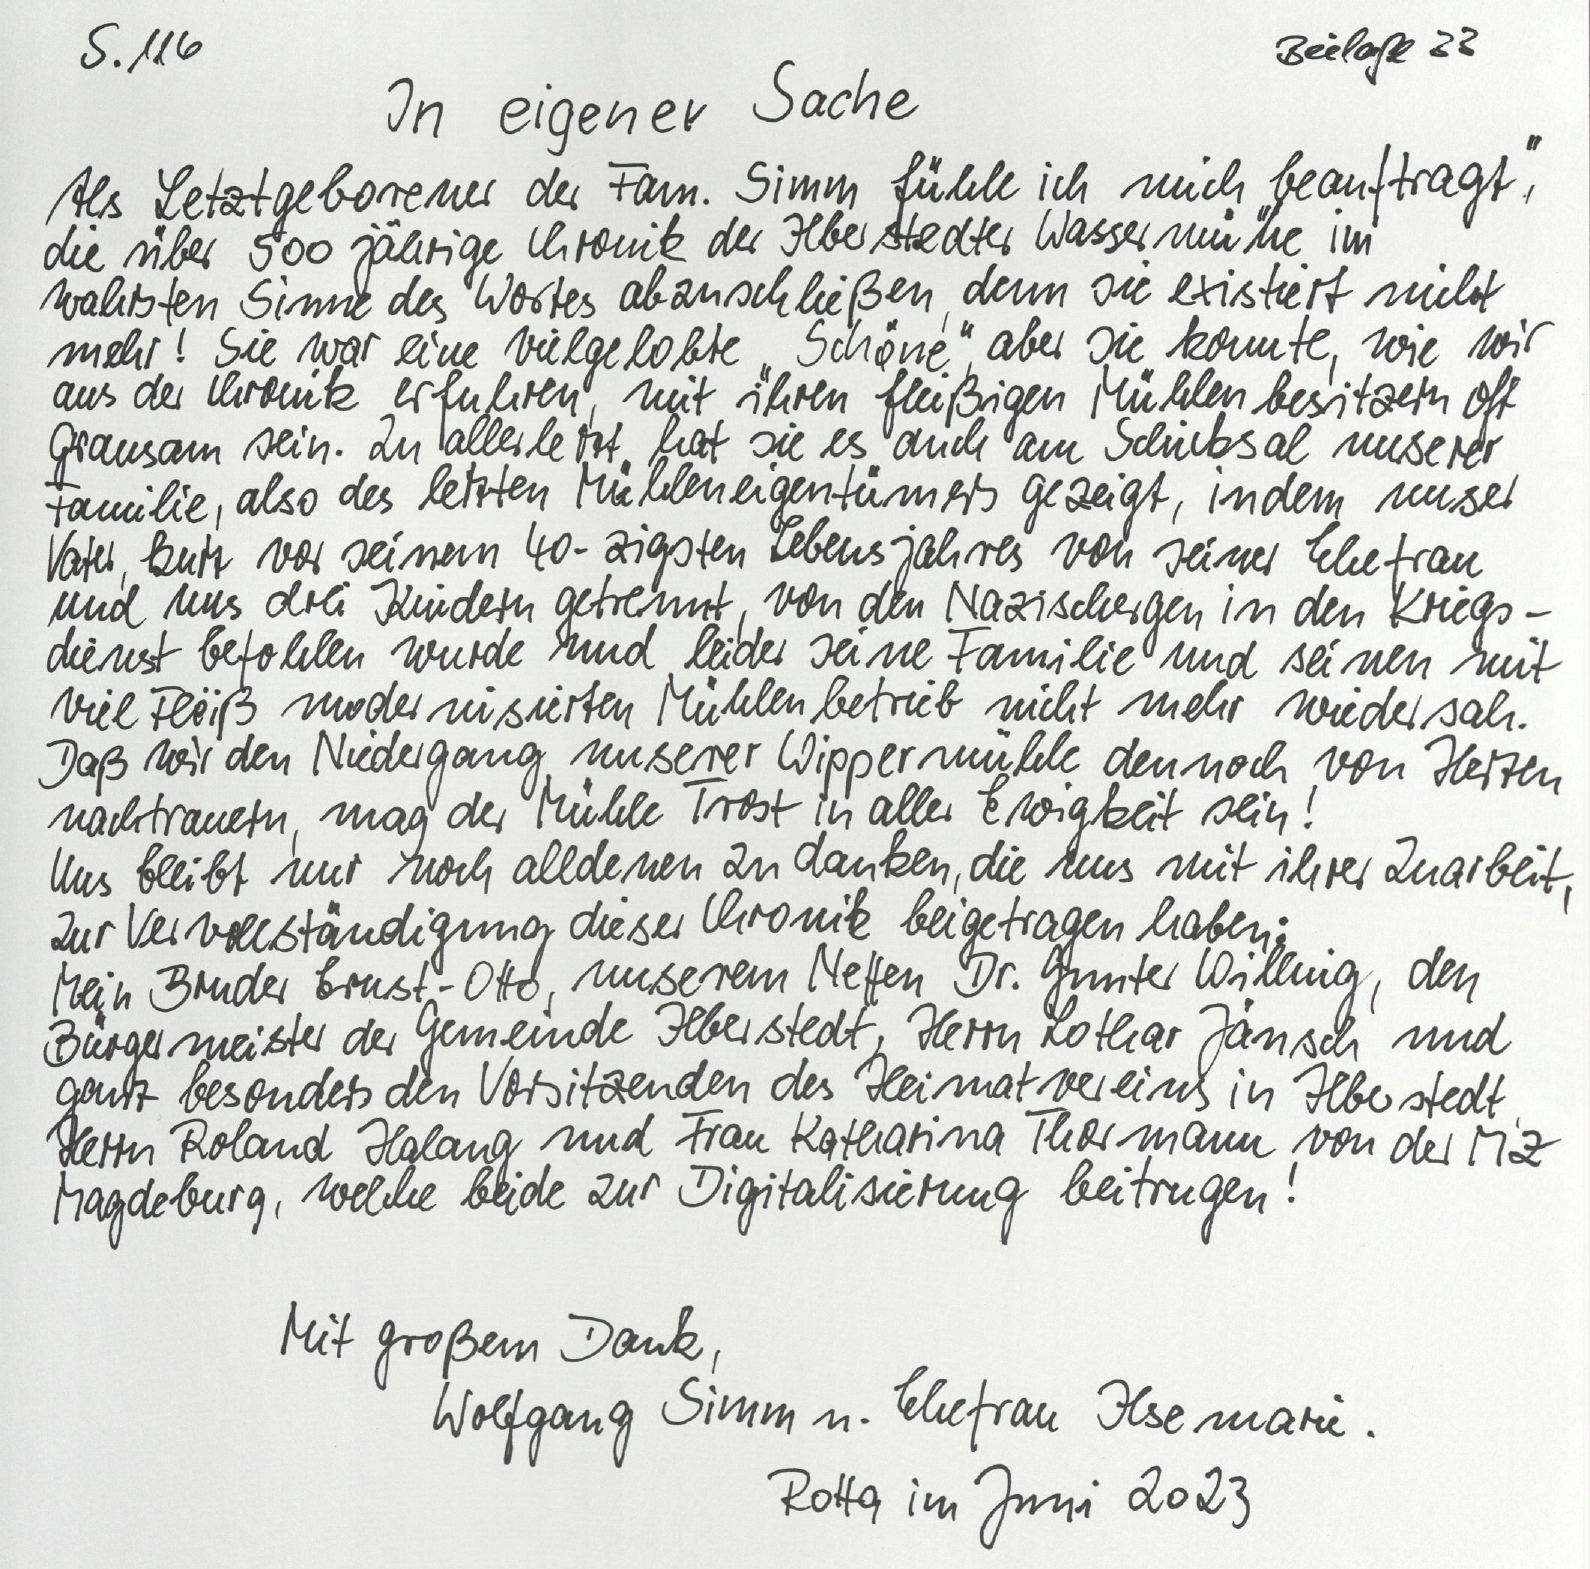 S. 116
Beilage 33
In eigener Sache
Als Letztgeborener der Fam. Simm fühle ich mich beauftragt",
die über 500 jährige Chronik der Ilberstedter Wassermühle im
wahrsten Sinne des Wortes abzuschließen, denn sie existiert nicht
mehr! Sie war eine vielgelobte „Schöne", aber sie konnte, wie wir
aus der Chronik erfuhren, mit ihren fleißigen Mühlenbesitzern oft
grausam sein. Zu allerletzt hat sie es auch am Schicksal unserer
Familie, also des letzten Mühleneigentümers gezeigt, indem unser
Vater, kurz vor seinem 40-zigsten Lebensjahres von seiner Ehefrau
und uns drei Kindern getrennt, von den Nazischergen in den Kriegs-
dienst befohlen wurde und leider seine Familie und seinen mit
viel Fleiß modernisierten Mühlenbetrieb nicht mehr wiedersah.
Daß wir den Niedergang unserer Wippermühle dennoch von Herzen
nachtrauern, mag der Mühle Trost in aller Ewigkeit sein!
Uns bleibt nur noch alldenen zu danken, die uns mit ihrer Zuarbeit,
zur Vervollständigung dieser Chronik beigetragen haben:
Mein Bruder Ernst-Otto, unserem Neffen Dr. Gunter Willing, den
Bürgermeister der Gemeinde Ilberstedt, Herrn Lothar Jänsch und
ganz besonders den Vorsitzenden des Heimatvereins in Ilberstedt,
Herrn Roland Halang und Frau Katharina Thormann von der MZ
Magdeburg, welche beide zur Digitalisierung beitrugen!
Mit großem Dank,
Wolfgang Simm u. Ehefrau Ilsemarie.
Rotta im Juni 2023